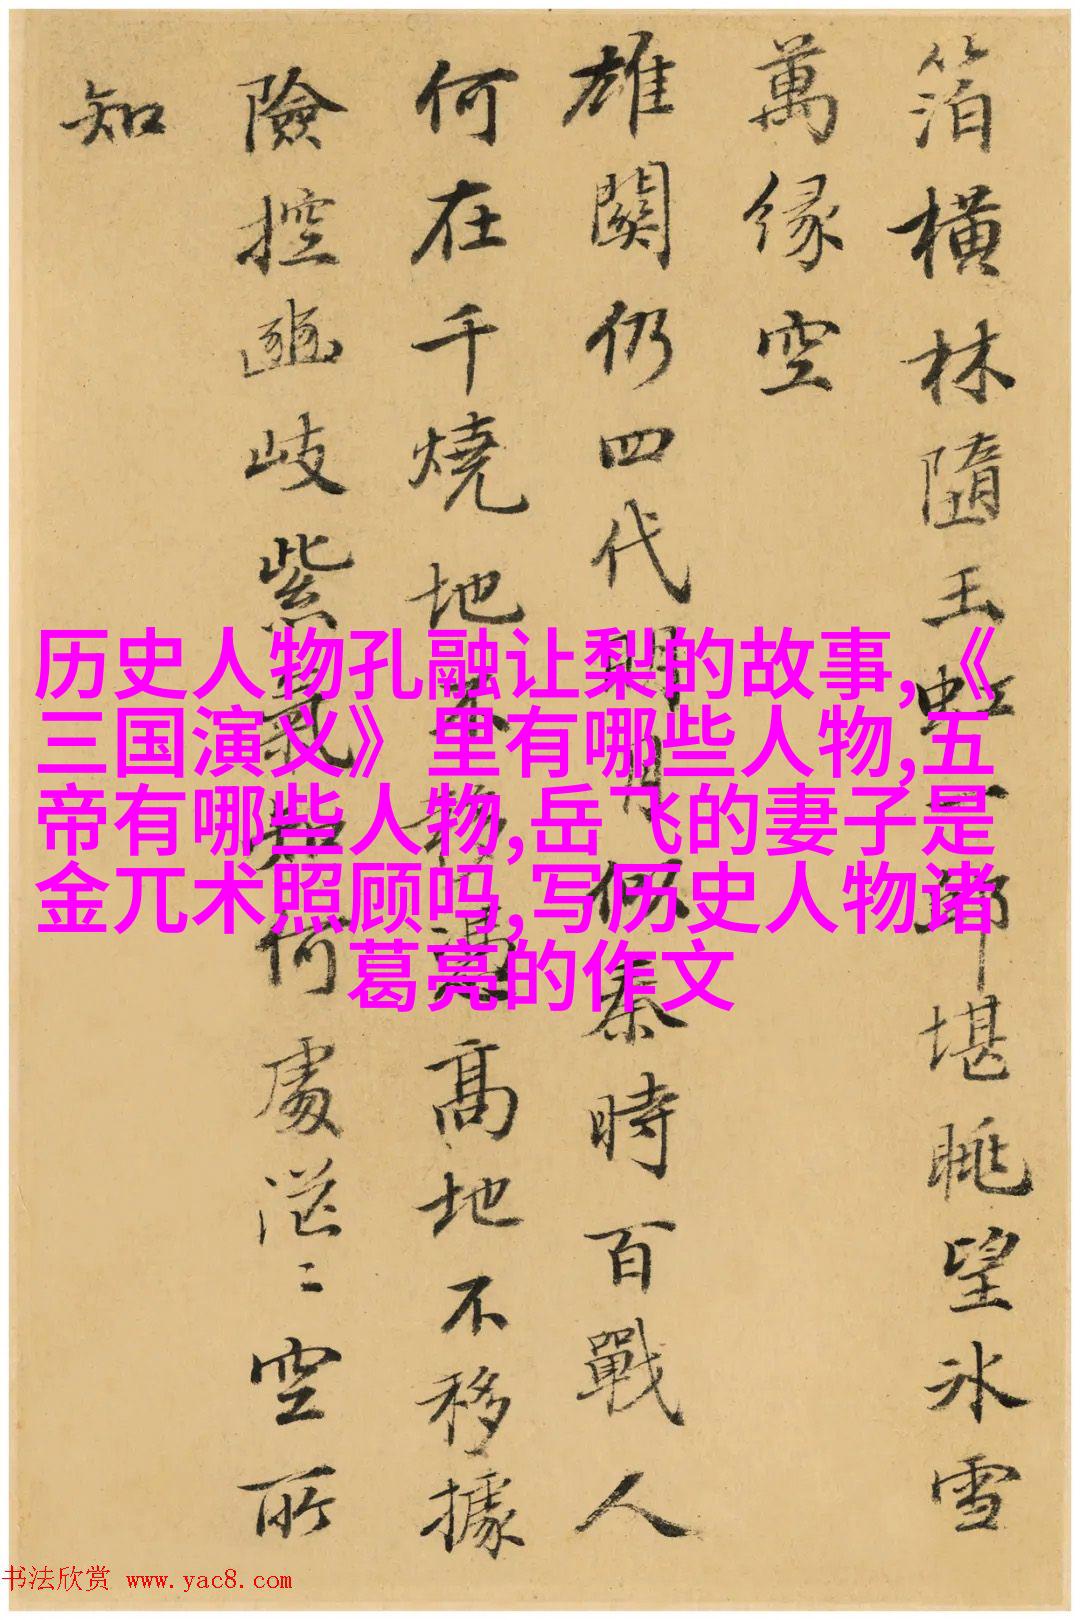 箔橫林隨玉虹一邱堪眺望冰雪
萬緣空
雄關仍四代明月似秦時百戰人
何在千燒地不移據高地不移據
險控豳岐紫氣知何處漭〻空所
知
历史人物孔融让梨的故事,《
三国演义》里有哪些人物,五
帝有哪些人物,岳飞的妻子是
金兀术照顾吗,写历史人物诸
葛亮的作文
书法欣赏 www.yac8.com